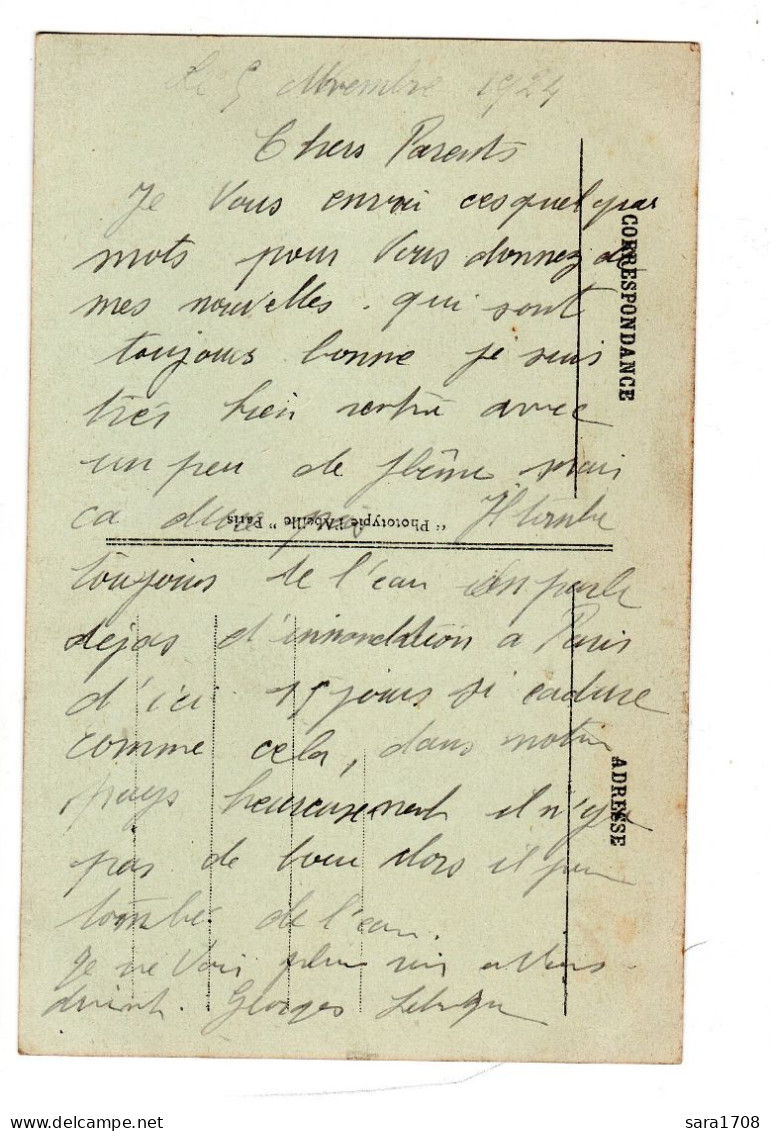 Le 5 Novembre 1924
Chers Parents
Je Vous envoi ces quelques
mots pour Vous donnez de
mes nouvelles. qui sont
toujours bonne je suis
très bien rentré avec
un peu de flême mais
ca dure pas Il tombe
toujours de l'eau on parle
dejas d'innondation a Paris
d'ici 15 jours si ca dure
comme cela, dans notre
pays heureusement il n'y a
pas de boue alors il peu
tombé de l'eau.
Je ne Vois plus rien a Vous
Georges
CORRESPONDANCE
ADRESSE
" Phototypie l'Abeille " Paris
sara1708